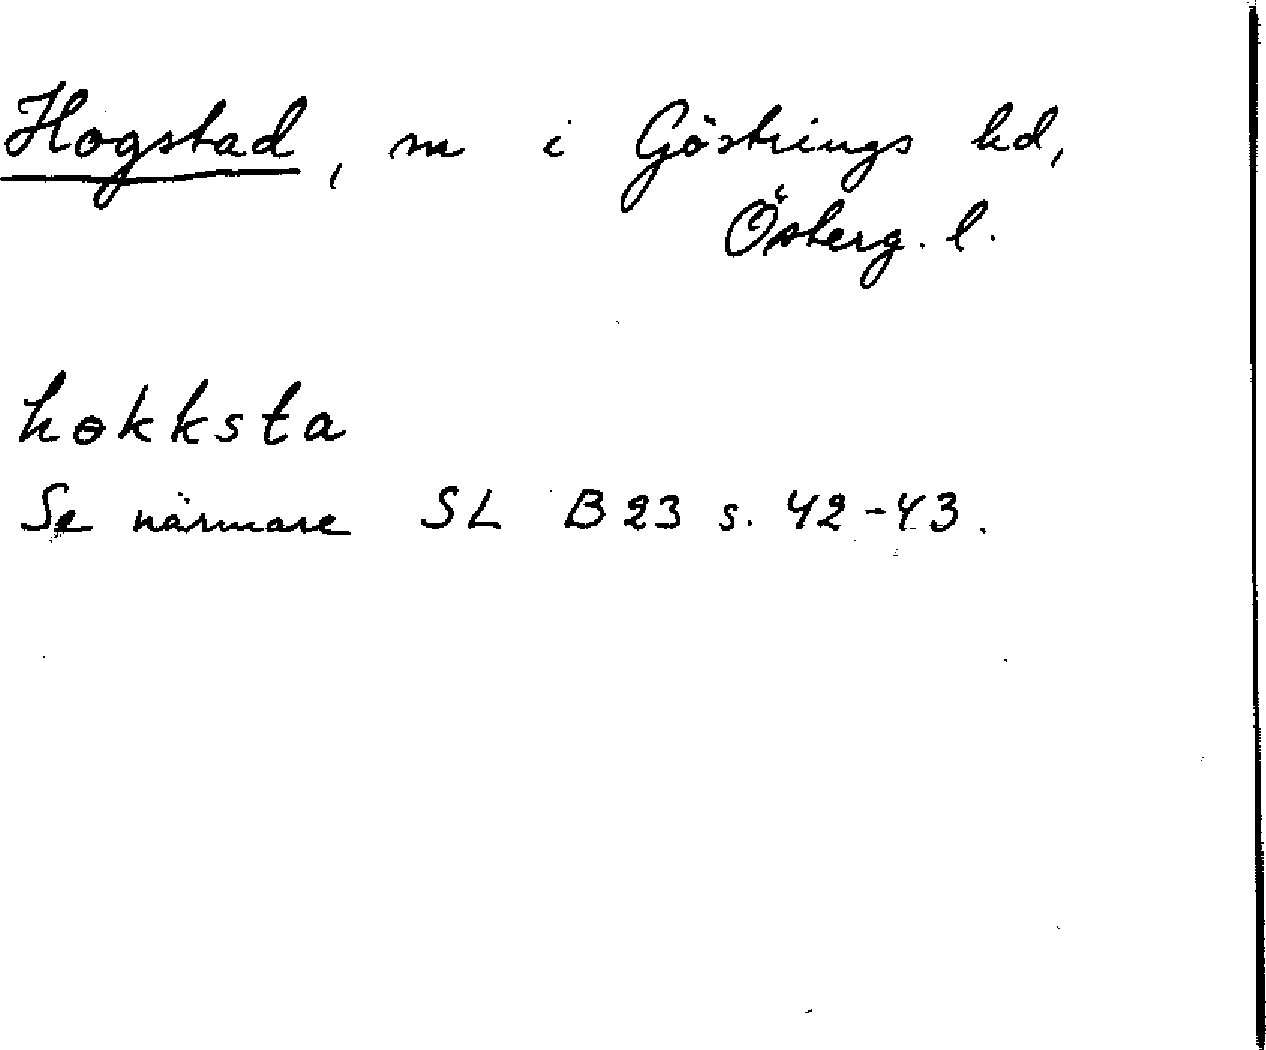 Hogstad, sn i Göstrings hd,
Österg. l.
hɵkksta
Se närmare SL B 23 s. 42-43.